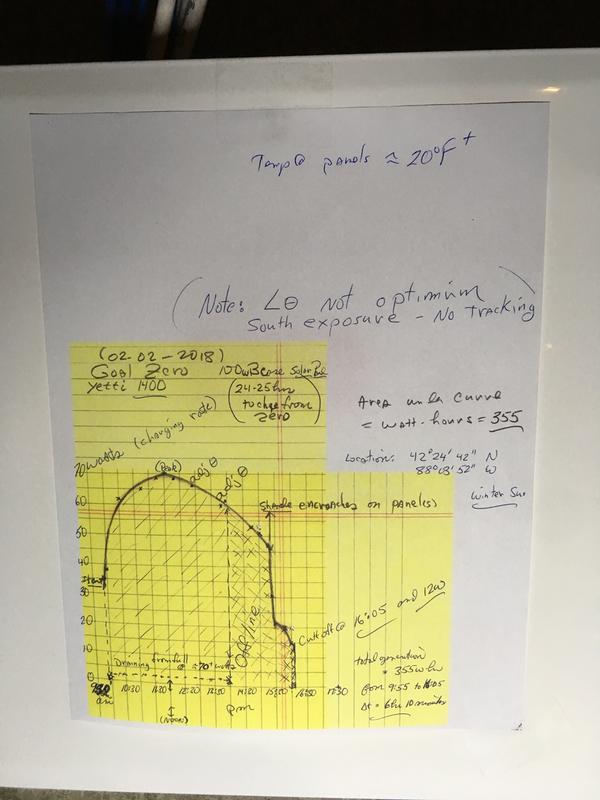 Temp@ panels ≈ 20°F +
(Note: ∠θ Not optimium
South exposure - No Tracking)
(02-02-2018)
Goal Zero
Yetti 1400
(24-25 hrs
to chge from
zero)
Area under Curve
= watt-hours = 355
Location: 42°24' 42" N
W
Winter Sun
70 watts (charging rate)
(Peak)
Adj θ
Adj θ
Shade encroaches on panel(s)
60
50
40
Start
30
20
10
0
Off line
Cutoff @ 16:05 and 12w
Draining from full @ ≈70+ watts
total generation
= 355 w hr
from 9:55 to 16:05
Δt = 6 hr 10 minutes
am
10:30
11:30
12:30
14:30
15:30
(Noon)
pm